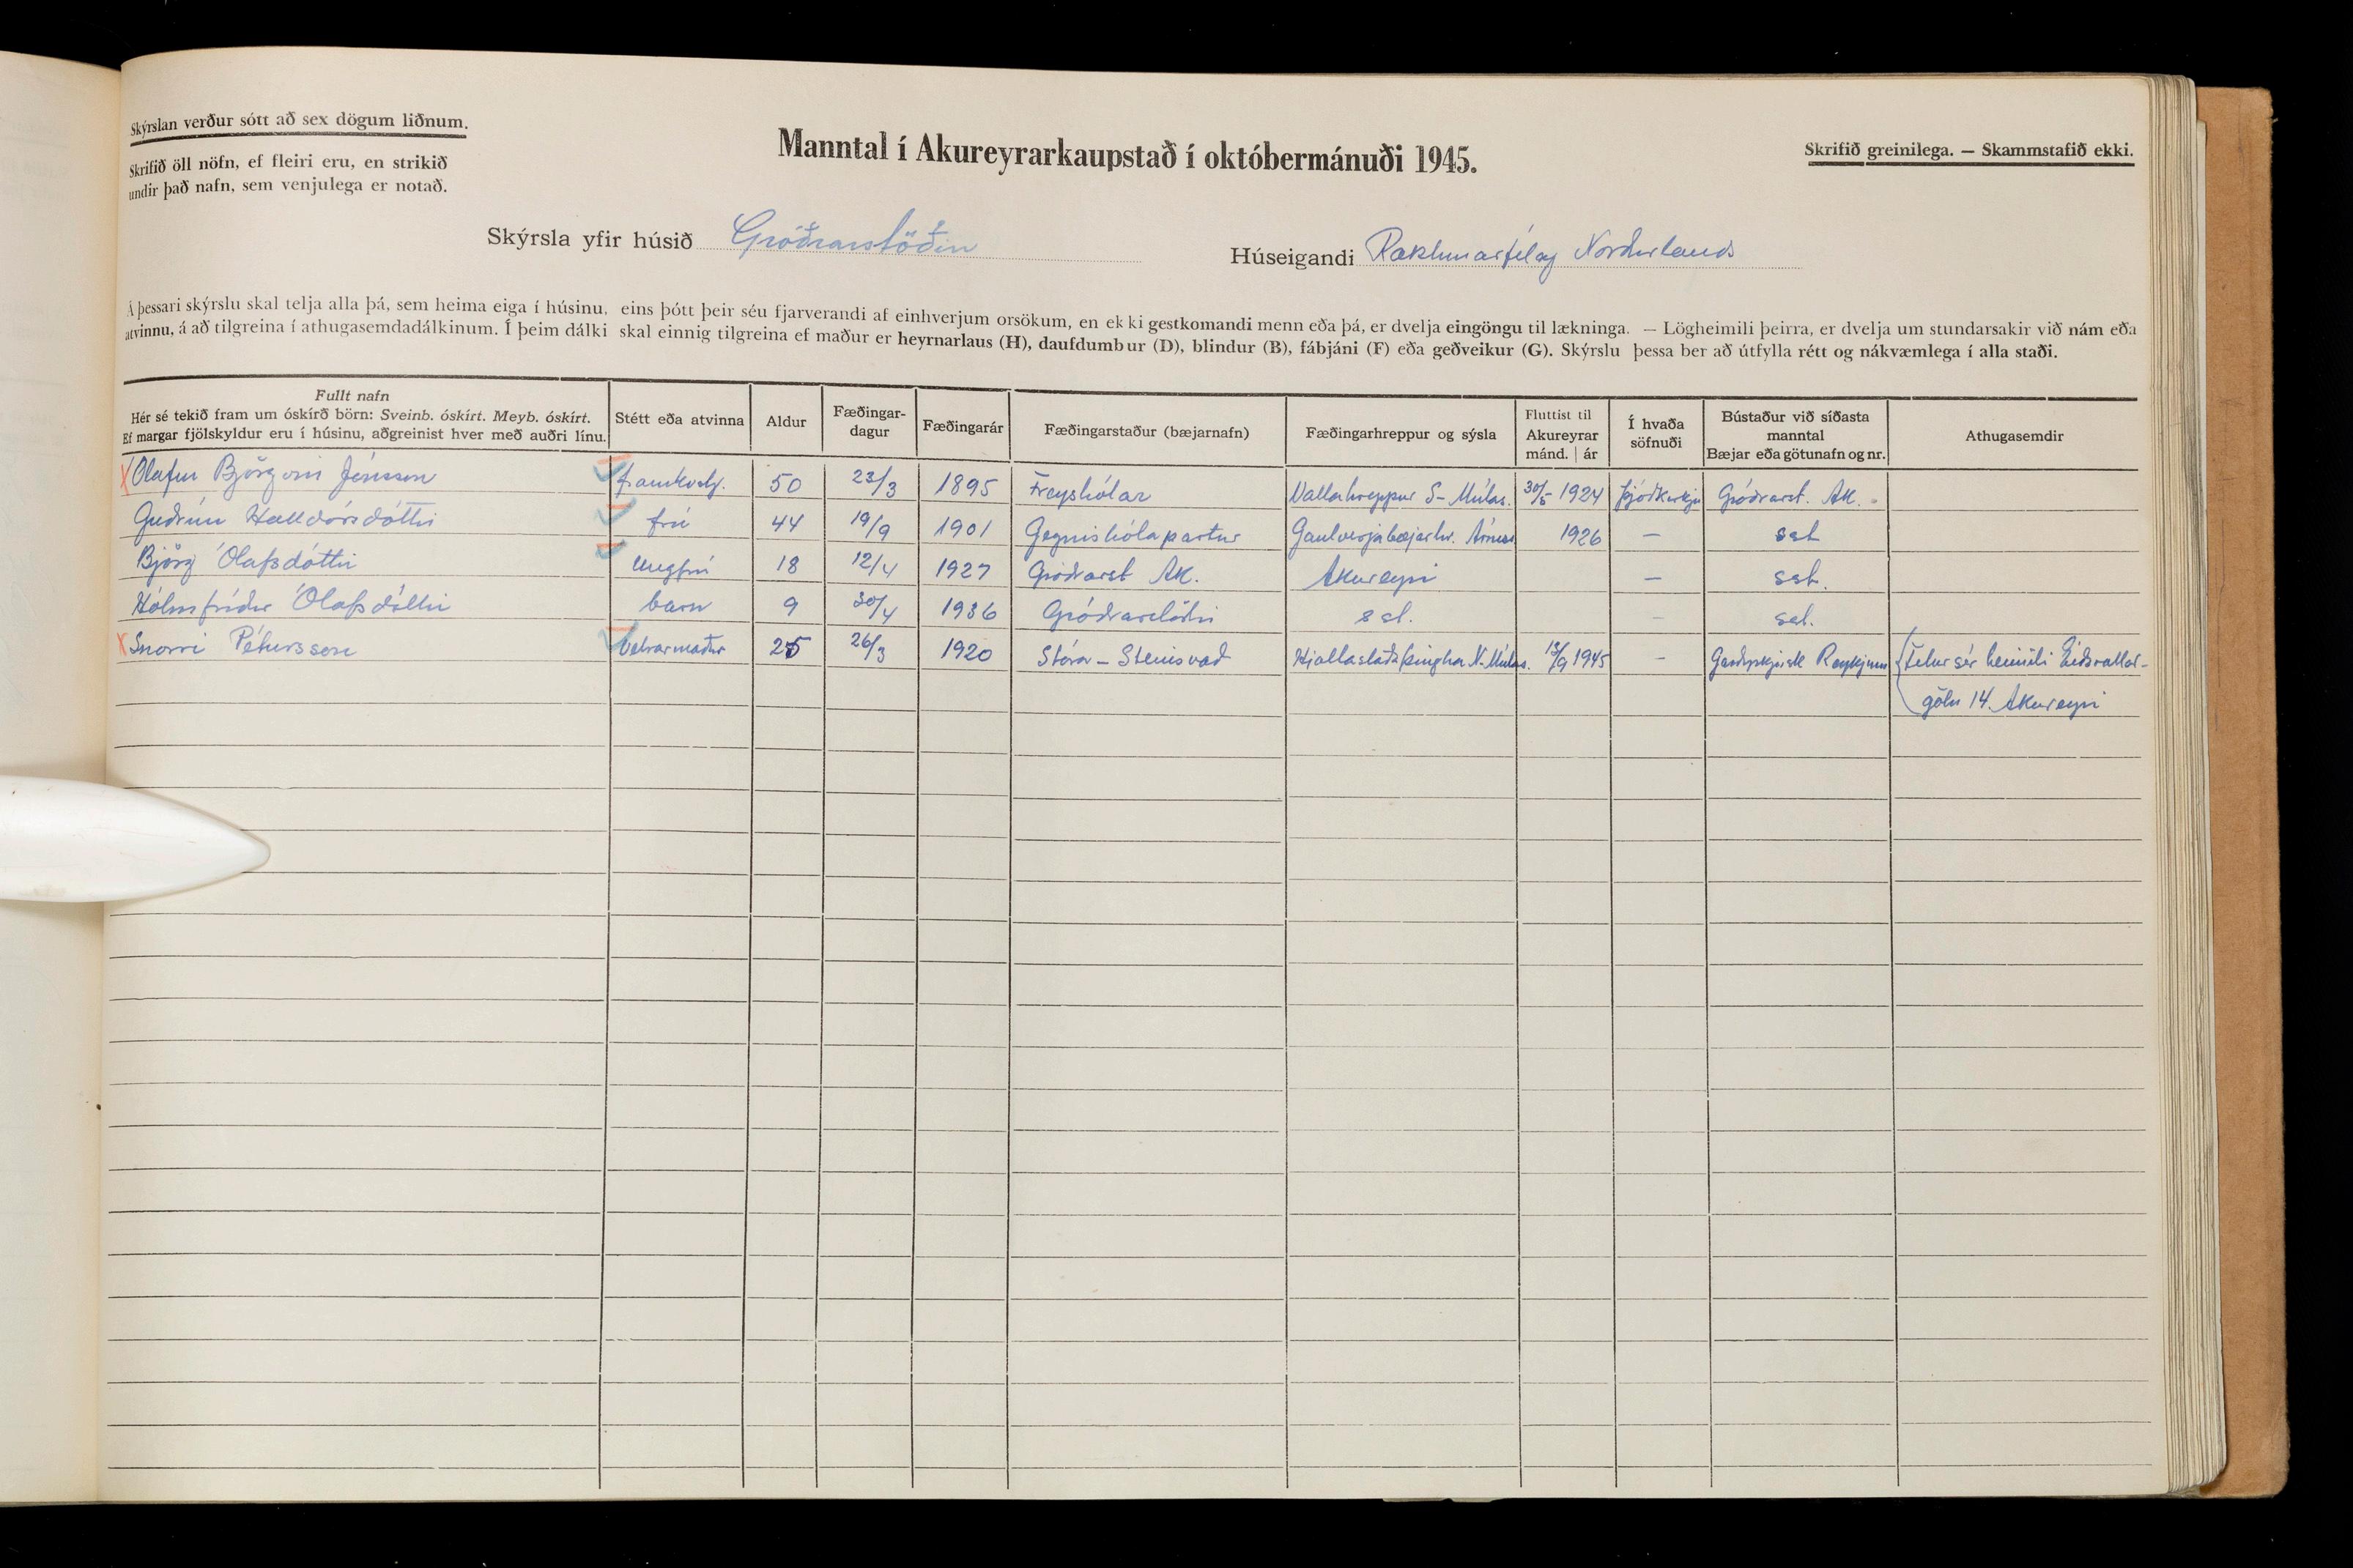 Skýrslan verður sótt að sex dögum liðnum.
Skrifið öll nöfn, ef fleiri eru, en strikið
undir það nafn, sem venjulega er notað.
Manntal í Akureyrarkaupstað í októbermánuði 1945.
Skrifið greinilega. — Skammstafið ekki.
Skýrsla yfir húsið Gróðrarstöðin
Húseigandi Ræktunarfélag Norðurlands
Á þessari skýrslu skal telja alla þá, sem heima eiga í húsinu, eins þótt þeir séu fjarverandi af einhverjum orsökum, en ekki gestkomandi menn eða þá, er dvelja eingöngu til lækninga. — Lögheimili þeirra, er dvelja um stundarsakir við nám eða
atvinnu, á að tilgreina í athugasemdadálkinum. Í þeim dálki skal einnig tilgreina ef maður er heyrnarlaus (H), daufdumbur (D), blindur (B), fábjáni (F) eða geðveikur (G). Skýrslu þessa ber að útfylla rétt og nákvæmlega í alla staði.
Fullt nafn
Hér sé tekið fram um óskírð börn: Sveinb. óskírt. Meyb. óskírt.
Ef margar fjölskyldur eru í húsinu, aðgreinist hver með auðri línu.
Stétt eða atvinna
Aldur
Fæðingar-
dagur
Fæðingarár
Fæðingarstaður (bæjarnafn)
Fæðingarhreppur og sýsla
Fluttist til
Akureyrar
mánd. | ár
Í hvaða
söfnuði
Bústaður við síðasta
manntal
Bæjar eða götunafn og nr.
Athugasemdir
X Ólafur Björgvin Jónsson framkvstj. 50 23/3 1895 Freyshólar Vallahreppur S-Múlas. 30/5 1924 þjóðkirkju Gróðrarst. Ak.
Guðrún Halldórsdóttir frú 44 19/9 1901 Gegnishólapartur Gaulverjabæjarhr. Árness 1926 — sst
Björg Ólafsdóttir ungfrú 18 12/4 1927 Gróðrarst Ak. Akureyri — sst.
Hólmfríður Ólafsdóttir barn 9 30/4 1936 Gróðrarstöðin sst. — sst.
X Snorri Pétursson vetrarmaður 25 26/3 1920 Stóra-Steinsvað Hjaltastaðaþinghá N-Múlas. 13/9 1945 — Reykjum Telur sér heimili Eiðsvallar-
götu 14. Akureyri